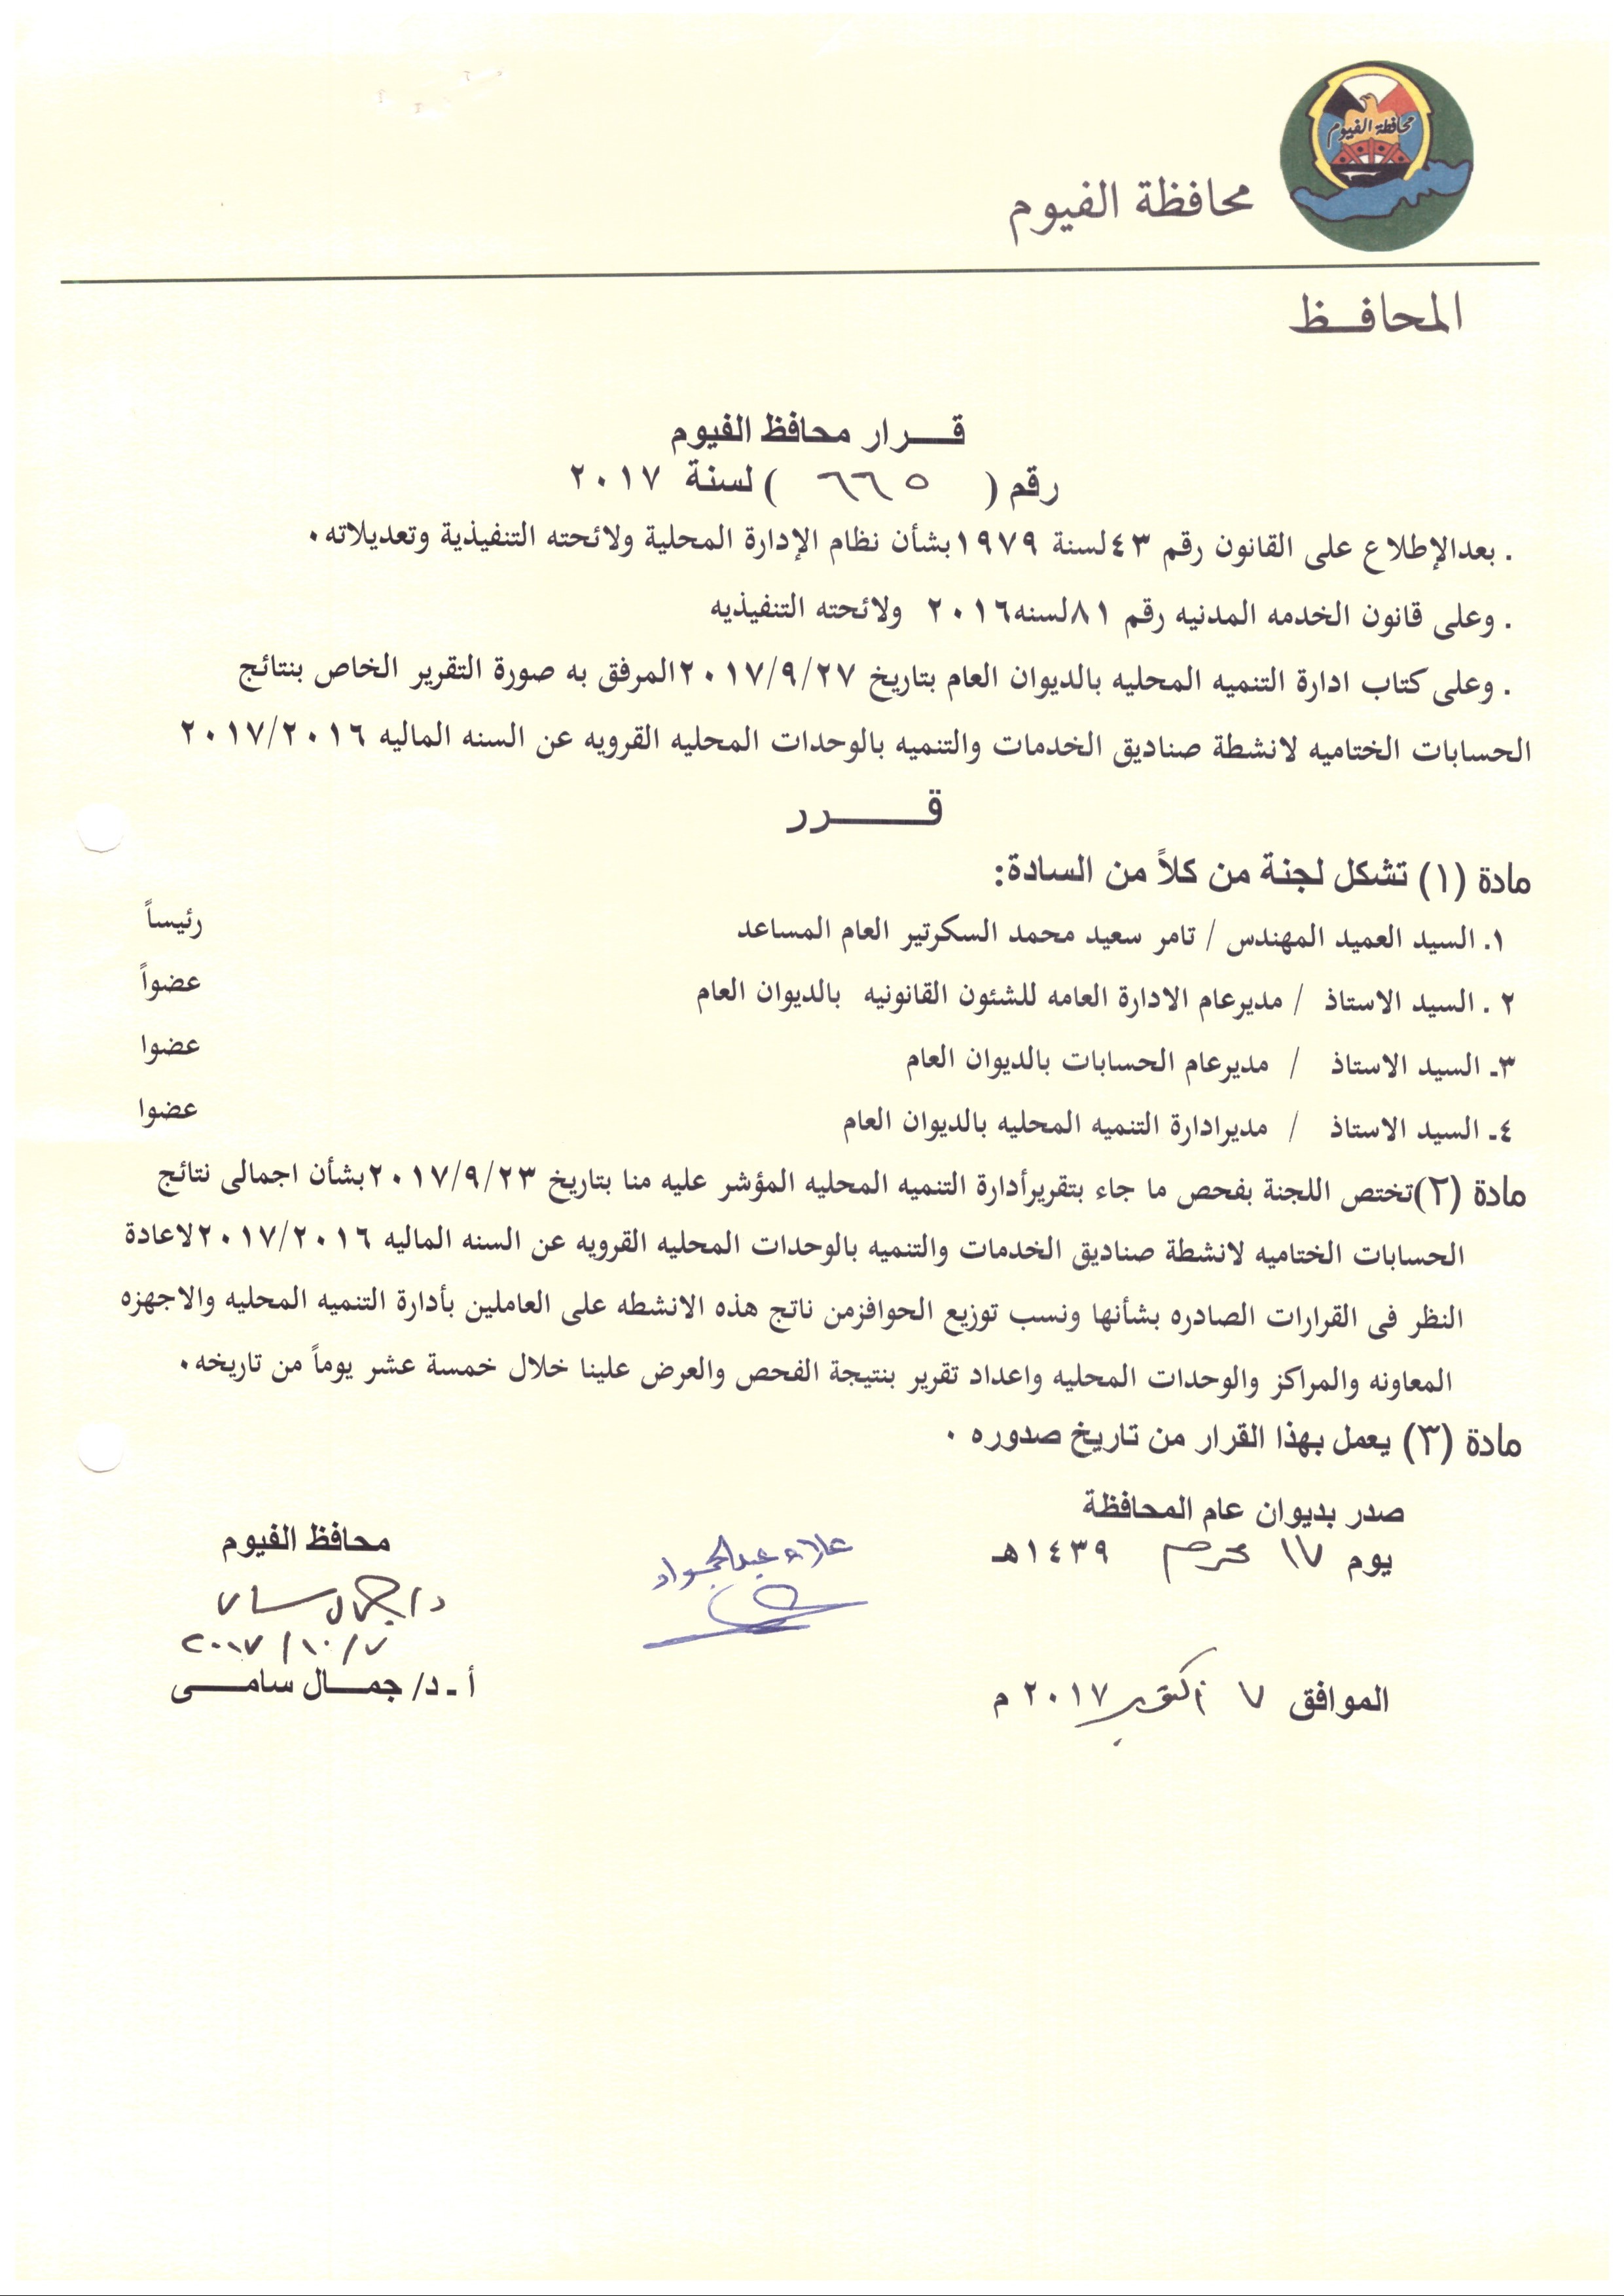 محافظة الفيوم
محافظة الفيوم
المحافــظ
قــــرار محافظ الفيوم
رقم ( ٦٦٥ ) لسنة ٢٠١٧
. بعدالإطلاع على القانون رقم ٤٣لسنة ١٩٧٩بشأن نظام الإدارة المحلية ولائحته التنفيذية وتعديلاته٠
. وعلى قانون الخدمه المدنيه رقم ٨١لسنه٢٠١٦ ولائحته التنفيذيه
. وعلى كتاب ادارة التنميه المحليه بالديوان العام بتاريخ ٢٠١٧/٩/٢٧المرفق به صورة التقرير الخاص بنتائج
الحسابات الختاميه لانشطة صناديق الخدمات والتنميه بالوحدات المحليه القرويه عن السنه الماليه ٢٠١٧/٢٠١٦
قــــــرر
مادة (١) تشكل لجنة من كلاً من السادة:
١. السيد العميد المهندس / تامر سعيد محمد السكرتير العام المساعد رئيساً
٢ . السيد الاستاذ / مديرعام الادارة العامه للشئون القانونيه بالديوان العام عضواً
٣ـ السيد الاستاذ / مديرعام الحسابات بالديوان العام عضوا
٤ـ السيد الاستاذ / مديرادارة التنميه المحليه بالديوان العام عضوا
مادة (٢)تختص اللجنة بفحص ما جاء بتقريرأدارة التنميه المحليه المؤشر عليه منا بتاريخ ٢٠١٧/٩/٢٣بشأن اجمالى نتائج
الحسابات الختاميه لانشطة صناديق الخدمات والتنميه بالوحدات المحليه القرويه عن السنه الماليه ٢٠١٧/٢٠١٦لاعادة
النظر فى القرارات الصادره بشأنها ونسب توزيع الحوافزمن ناتج هذه الانشطه على العاملين بأدارة التنميه المحليه والاجهزه
المعاونه والمراكز والوحدات المحليه واعداد تقرير بنتيجة الفحص والعرض علينا خلال خمسة عشر يوماً من تاريخه٠
مادة (٣) يعمل بهذا القرار من تاريخ صدوره ٠
صدر بديوان عام المحافظة
يوم ١٧ محرم ١٤٣٩هـ
الموافق ٧ أكتوبر ٢٠١٧ م
علاء عبدالجواد
محافظ الفيوم
د/جمال سامى
٢٠١٧/١٠/٧
أ ـ د/ جمــال سامــى